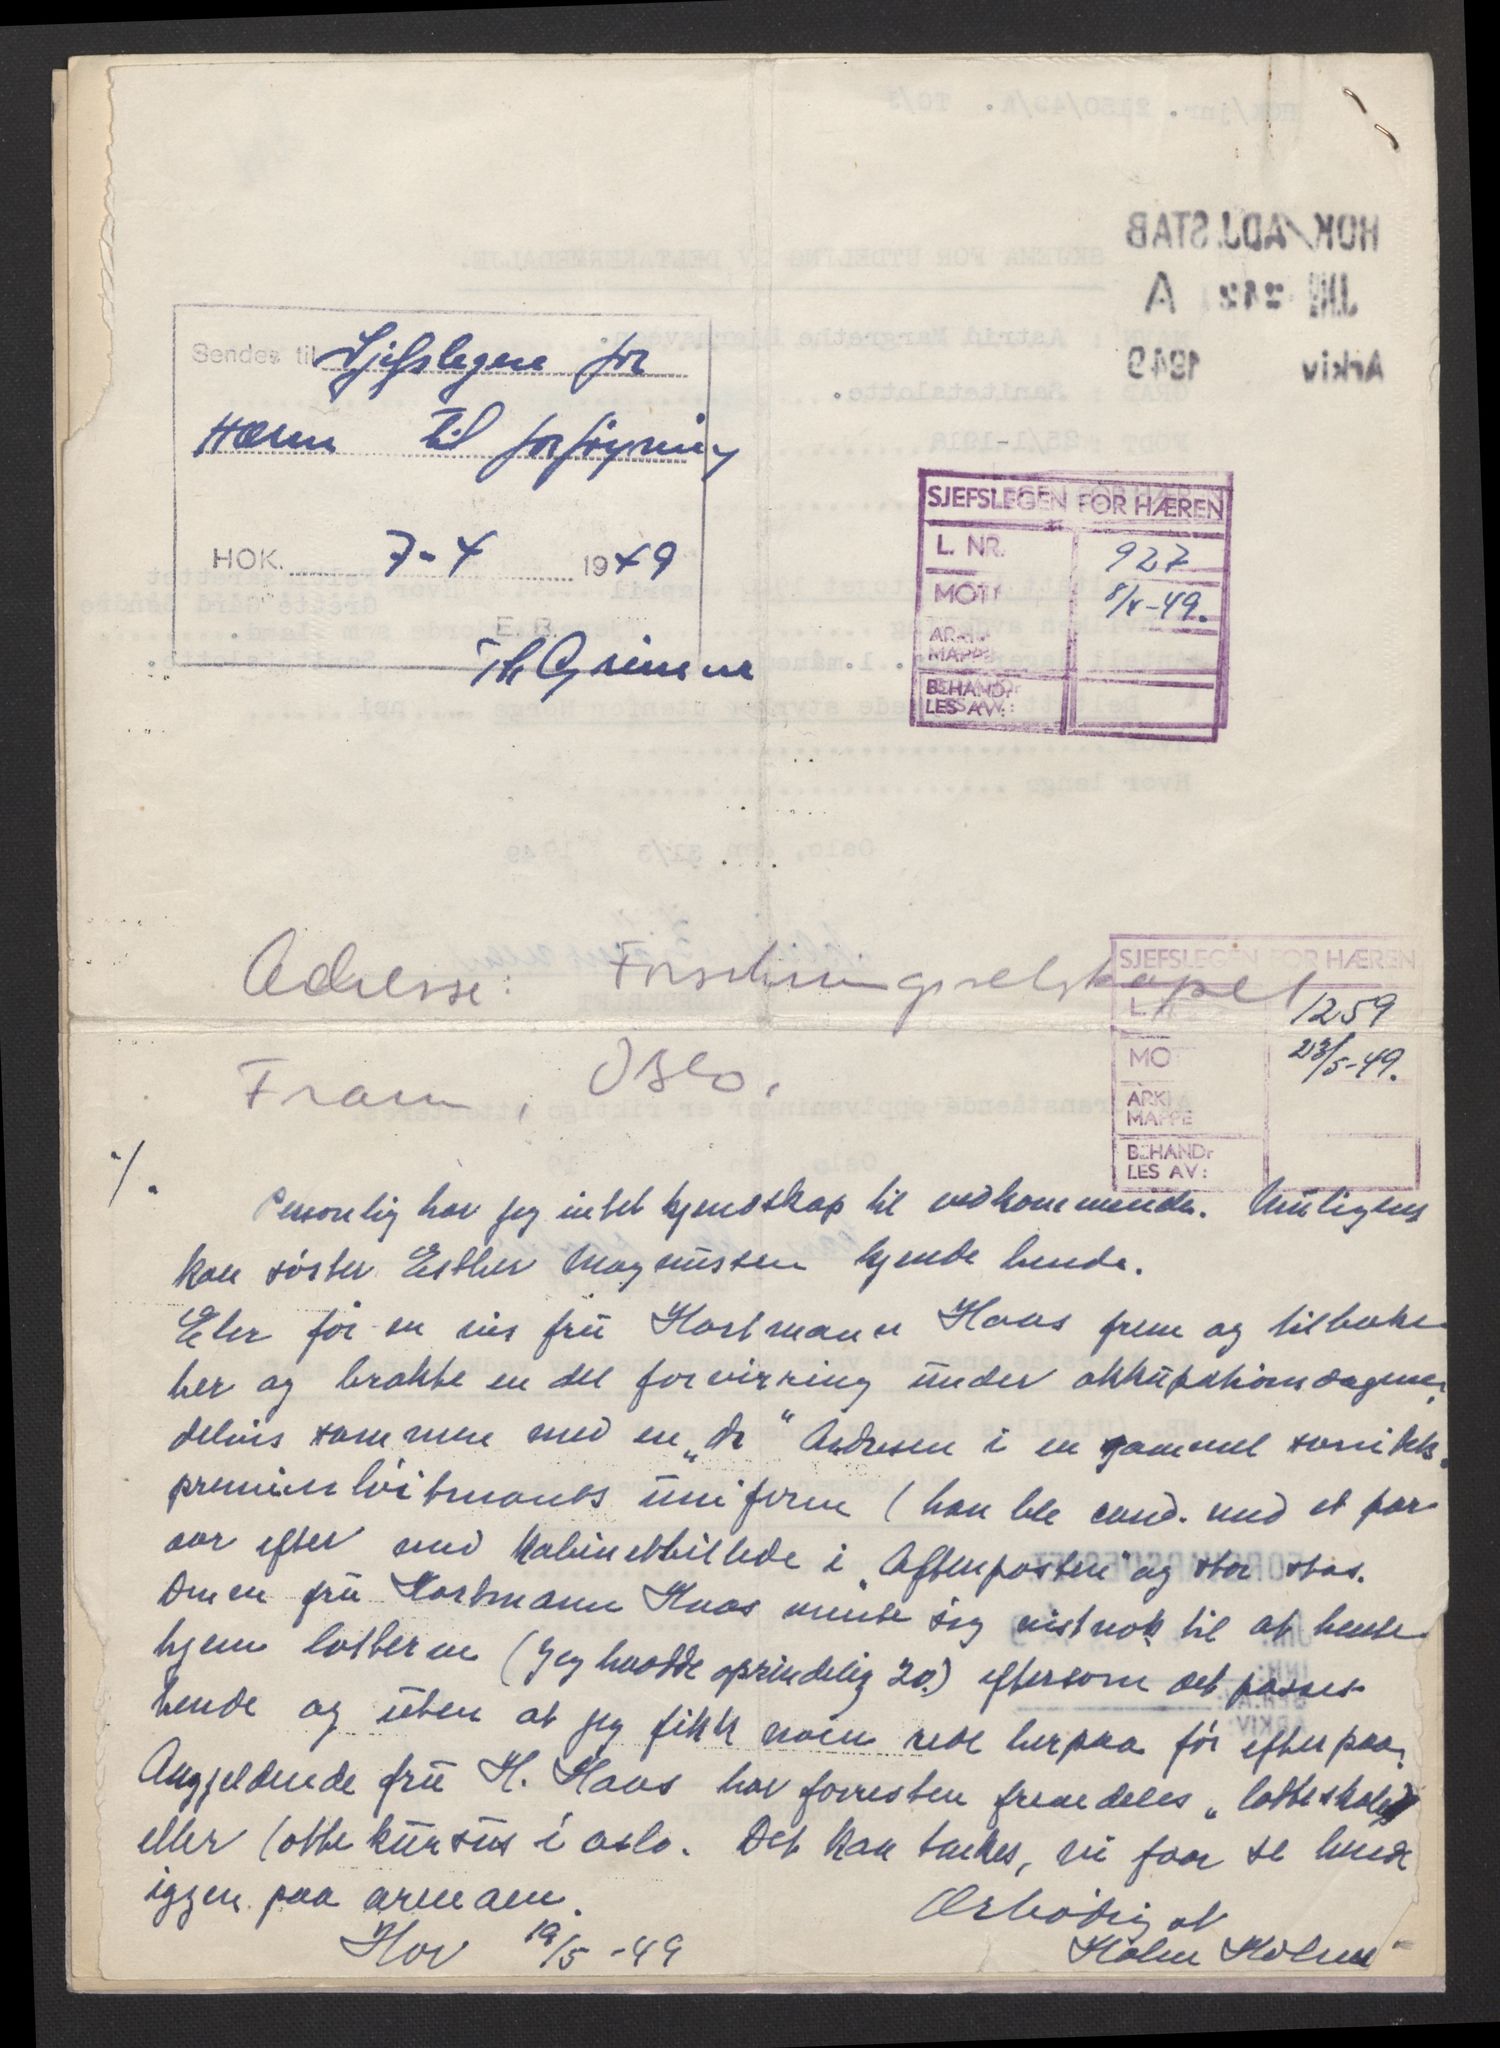 Sendes til Sjefslegen for
Hæren til forföyning
HOK. 7-4 1949
E.B.
Th Grimm
HOK/ADJ.STAB
A
Arkiv 1949
SJEFSLEGEN FOR HÆREN
L. NR. 927
MOTT 8/4-49.
ARKIV MAPPE
BEHANDLES AV:
Adresse: Forschningsselskapet
Fram, Oslo.
SJEFSLEGEN FOR HÆREN
L. 1259
MO 23/5-49.
ARKI MAPPE
BEHANDLES AV:
·/.
Personlig har jeg intet kjendskap til vedkommende. Muligens
kan söster Esther Magnussen kjende hende.
Eler för en vis frü Hartmann Haas frem og tilbake
her og brakte en del forvirring ünder okküpationsdagene,
delvis sammen med en „dr" Andresen i en gammel sanitets-
premierlöitmants üniform (han ble cand. med et par
aar efter med kabinetbillede i „Aftenposten" og stor stas.
Denne frü Hartmann Haas mente sig nistnok til at hente
hjem lotterne (jeg hadde oprindelig 20.) eftersom det passet
hende og üten at jeg fikk noen rede herpaa för efterpaa.
Angjeldende frü H. Haas har forresten fremdeles „lotteskole"
eller lottekürsüs i Oslo. Det kan tænkes, vi faar se hende
iggen paa arenaen.
Hov 19/5-49
Ærbödigst
Holm Holmsen